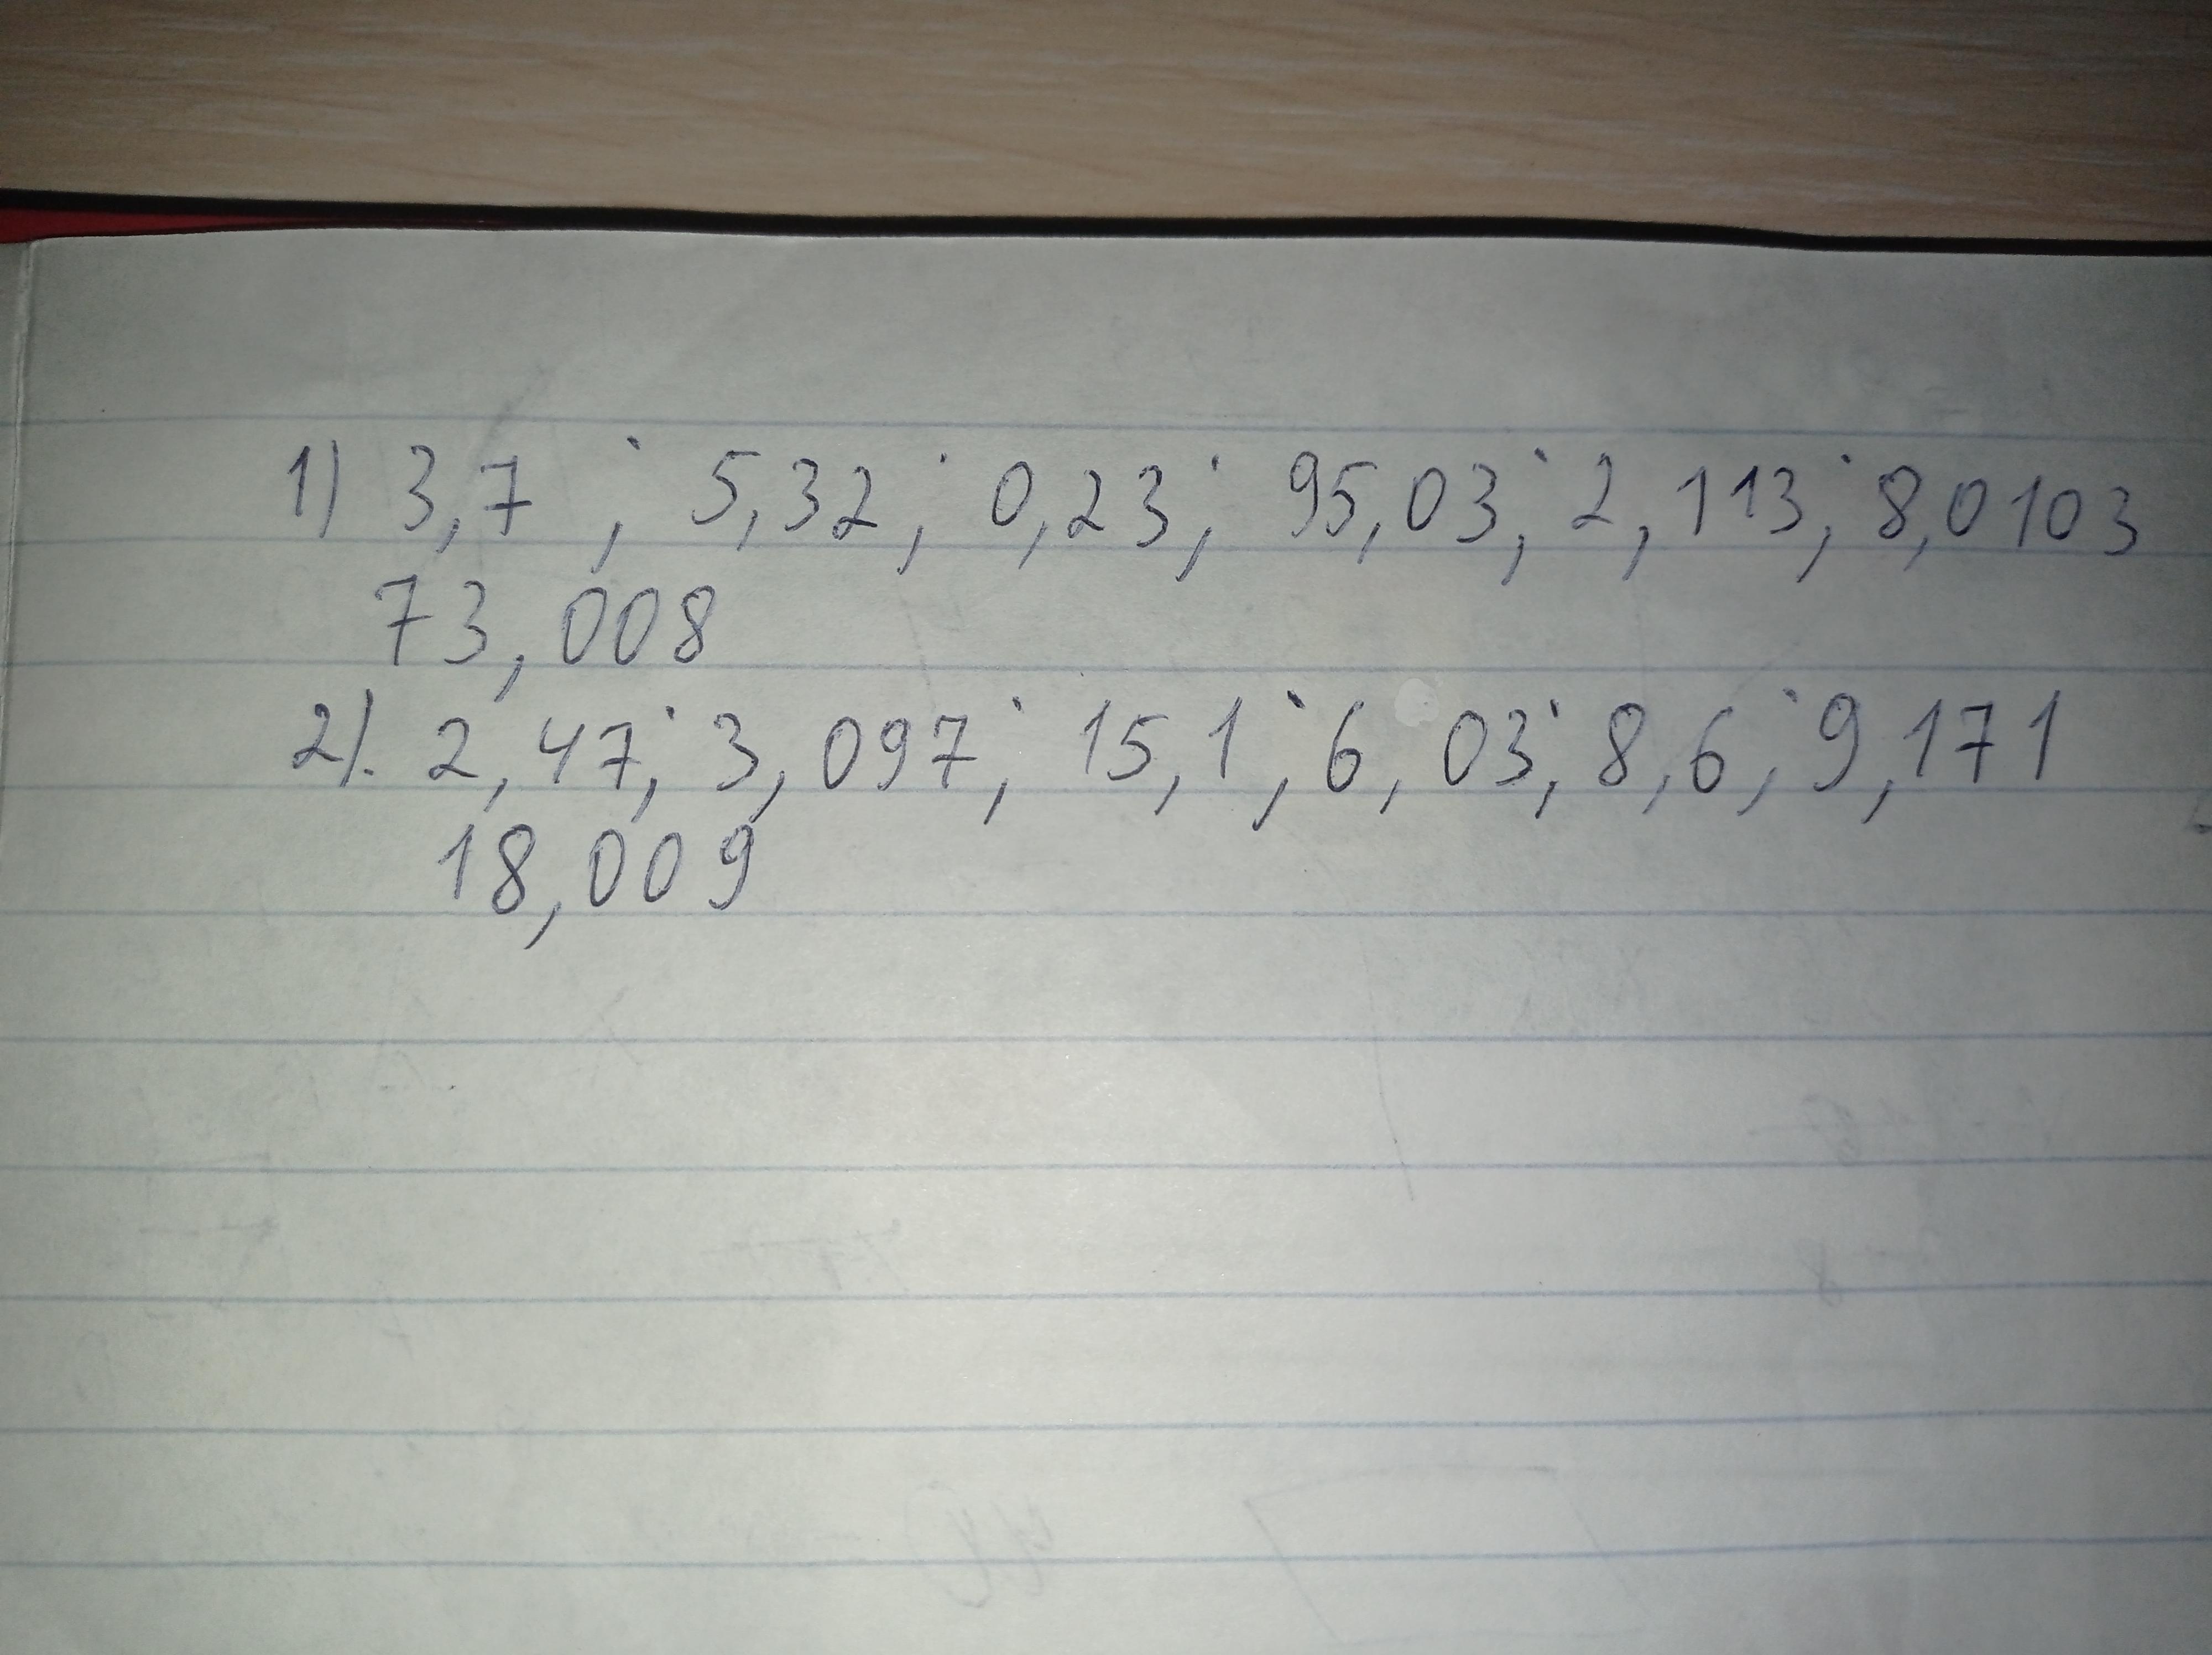 1) 3,7 ; 5,32; 0,23; 95,03; 2,113; 8,0103
73,008
2). 2,47; 3,097; 15,1; 6,03; 8,6; 9,171
18,009